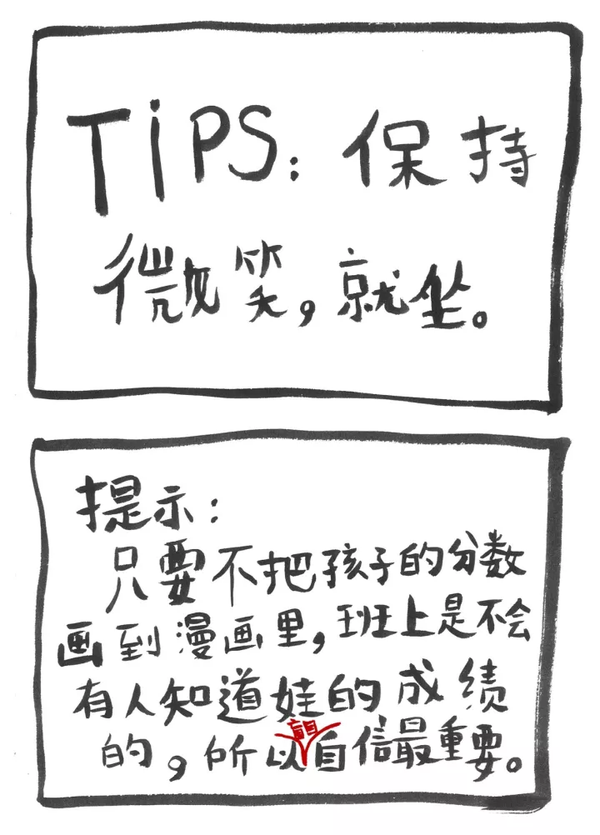 TiPS：保持
微笑，就坐。
提示：
只要不把孩子的分数
画到漫画里，班上是不会
有人知道娃的成绩
的，所以盲目自信最重要。